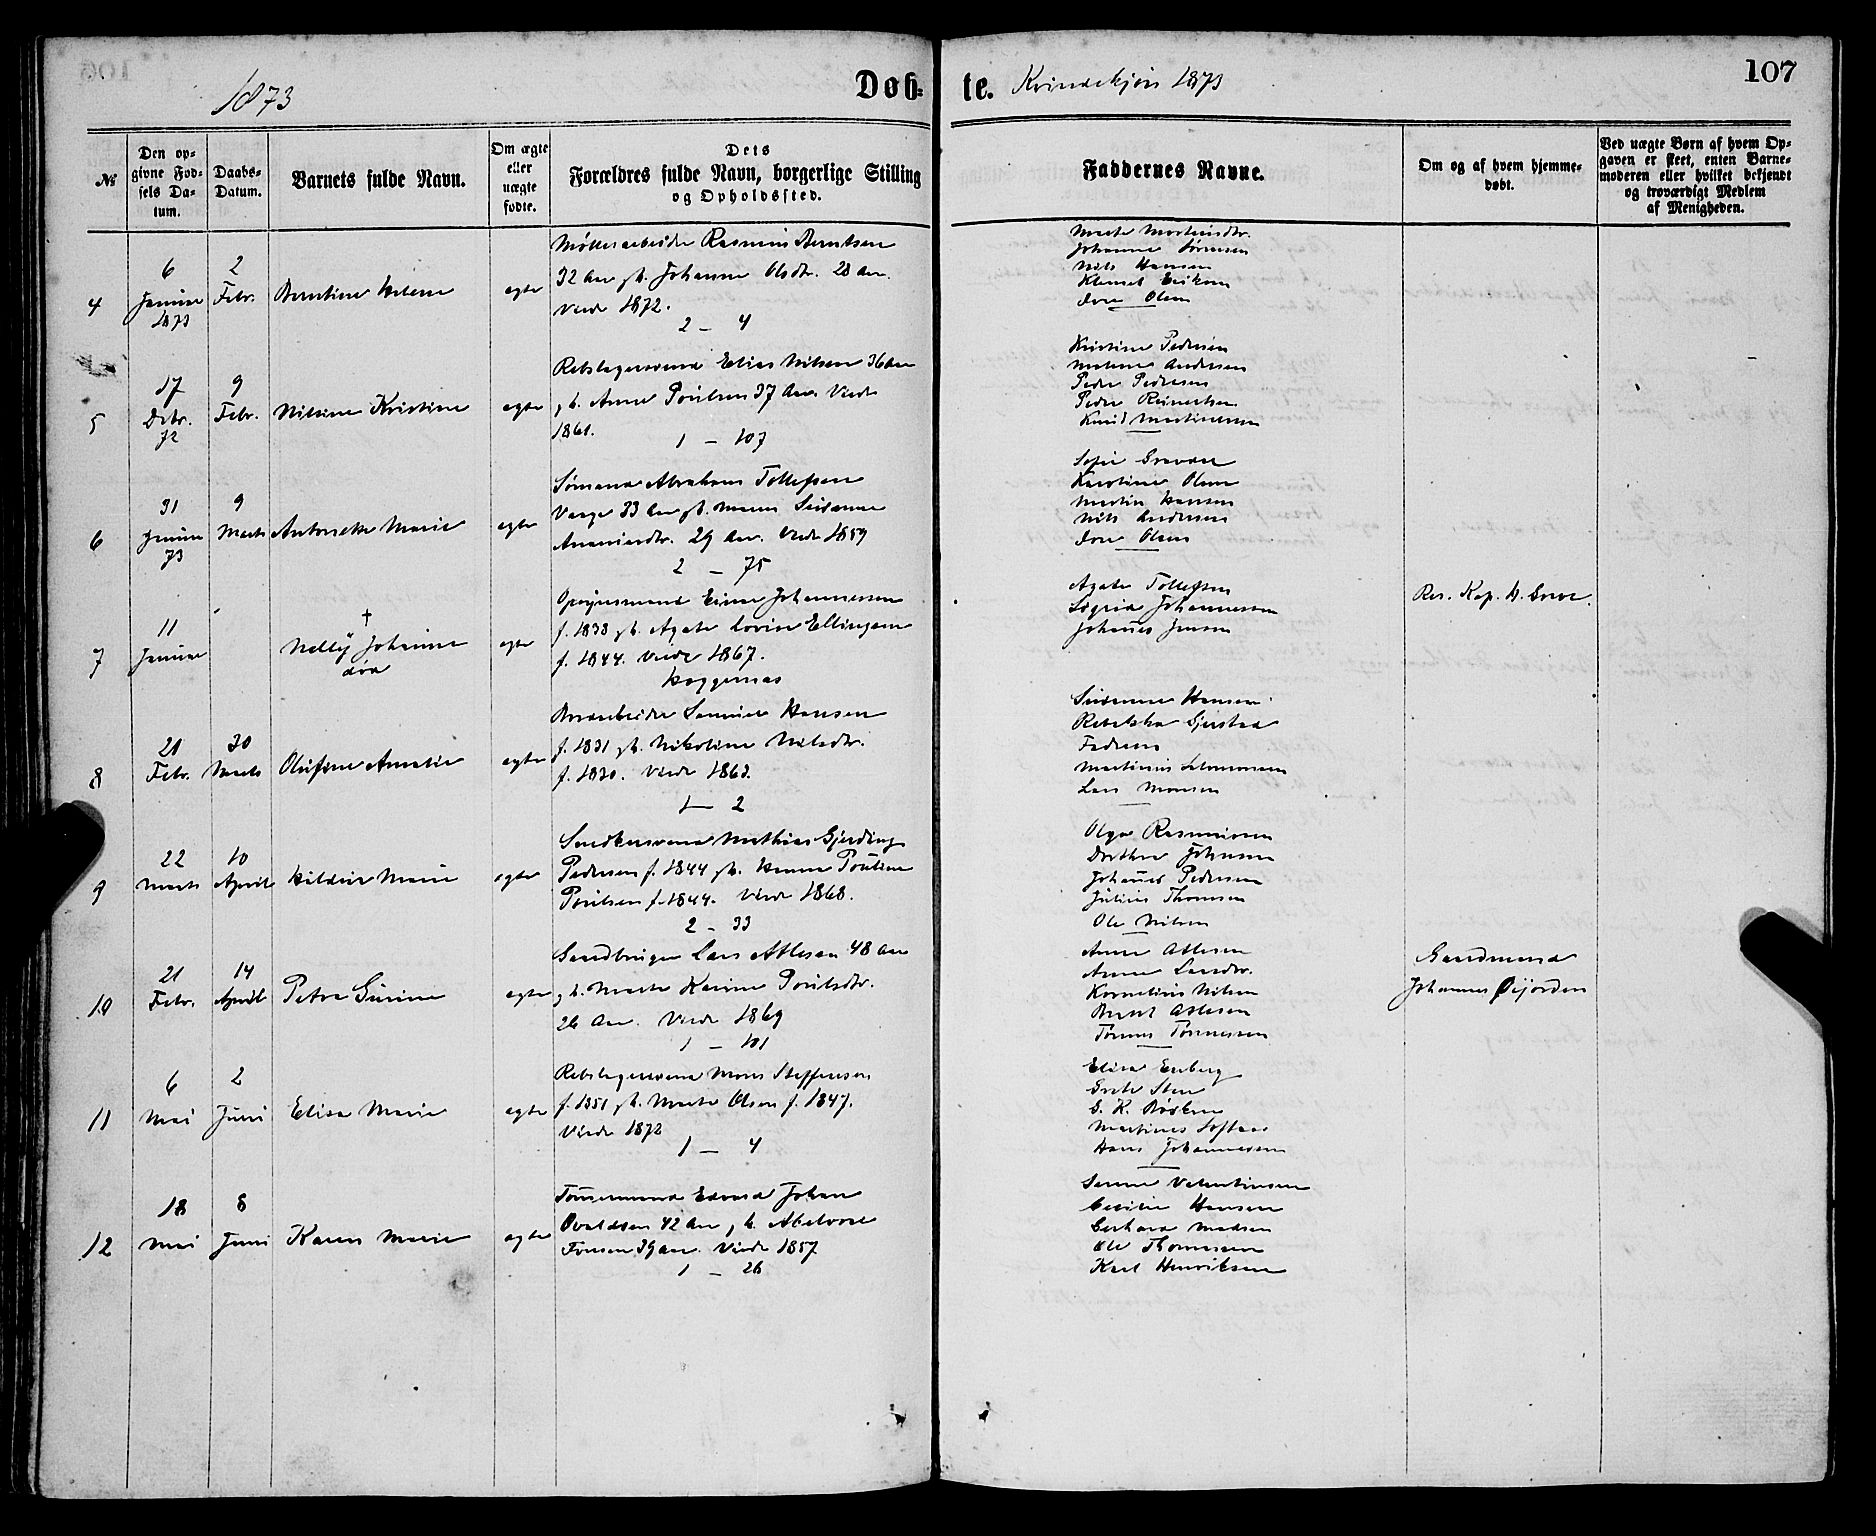 1873
Døb-
te. Kvindekjøn 1873
107
№
Den opgivne Fødsels Datum.
Daabs-Datum.
Barnets fulde Navn.
Om ægte eller uægte fødte.
Dets Forældres fulde Navn, borgerlige Stilling og Opholdssted.
Faddernes Navne.
Om og af hvem hjemmedøbt.
Ved uægte Børn af hvem Opgaven er skeet, enten Barnemoderen eller hvilket bekjendt og troværdigt Medlem af Menigheden.
4
6 Januar 1873
2 Febr.
Berntine Helene
ægte
Møllerarbeider Rasmus Berntsen
32 Aar g. h. Johanne Olsdtr. 28 Aar.
Viede 1872.
2 – 4
Marte Mortensdtr.
Johanne Sørensen
Nils Hansen
Klemet Eriksen
Olsen
5
17 Debr. 72
9 Febr.
Nilsine Kristine
ægte
Rebslagersvend Elias Nilsen 36 Aar
g. h. Anne Poulsen 37 Aar. Viede
1861.
1 – 107
Kristine Pedersen
Malene Andersen
Peder Pedersen
Peder Reinertsen
Knud Martinesen
6
31 Januar 73
9 Marts
Antonette Marie
ægte
Sømand Abraham Tollefsen
Vaage 33 Aar g. h. Maren Susanne
Ananiasdtr. 29 Aar. Viede 1859
2 – 75
Sofie
Karoline Olsen
Martin Hansen
Nils Andersen
Olsen
7
11 Januar
†
Nelly Johanne
død
ægte
Opsynsmand Einar Johannessen
f. 1838 g. h. Agate Lovise Ellingsen
f. 1844. Viede 1867.
Haggernæs
Agate Tollefsen
Sigrid Johannessen
Johannes Jensen
Res. Kap.
8
21 Febr.
30 Marts
Olufine Amalie
ægte
Samuel Hansen
f. 1831 g. h. Nikoline Nilsdtr.
f. 1830. Viede 1863.
1 – 2
Susanne Hansen
Rebekka Gjerstad
Faderen
Martinius Salomonsen
Lars Monsen
9
22 Marts
10 April
Hildur Marie
ægte
Snedkersvend Mathias Gjerding
Pedersen f. 1844 g. h. Hanne Pouline
Poulsen f. 1844. Viede 1868.
2 – 33
Olga Rasmussen
Dorthea Johnsen
Johannes Pedersen
Julius Thomsen
Ole Nilsen
10
21 Febr.
14 April
Petra Gurine
ægte
Lars Atlesen 48 Aar
g. h. Marte Karine Poulsdtr.
26 Aar. Viede 1869
1 – 101
Anne Atlesen
Anne Larsdtr.
Kornelius Nilsen
Bernt Atlesen
Tønnes Tønnessen
Gaardmand
Johannes Øijorden
11
6 Mai
2 Juni
Elisa Marie
ægte
Rebslagersvend Mons Steffensen
f. 1851 g. h. Marte Olsen f. 1847.
Viede 1872
1 – 4
Elisa Enberg
Grete Sten
Hans Johannesen
12
18 Mai
8 Juni
Karen Marie
ægte
Edvard Johan
Osvaldsen 42 Aar g. h. Abelone
39 Aar. Viede 1857
1 – 26
Valentinsen
Cecilie Hansen
Gerhard Madsen
Ole Thomesen
Karl Henriksen